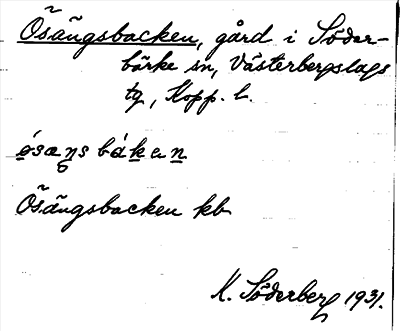 Ösängsbacken, gård i Söder-
bärke sn, Västerbergslags
tg, Kopp. l.
ósæŋs báken
Ösängsbacken kb
K. Söderberg 1931.